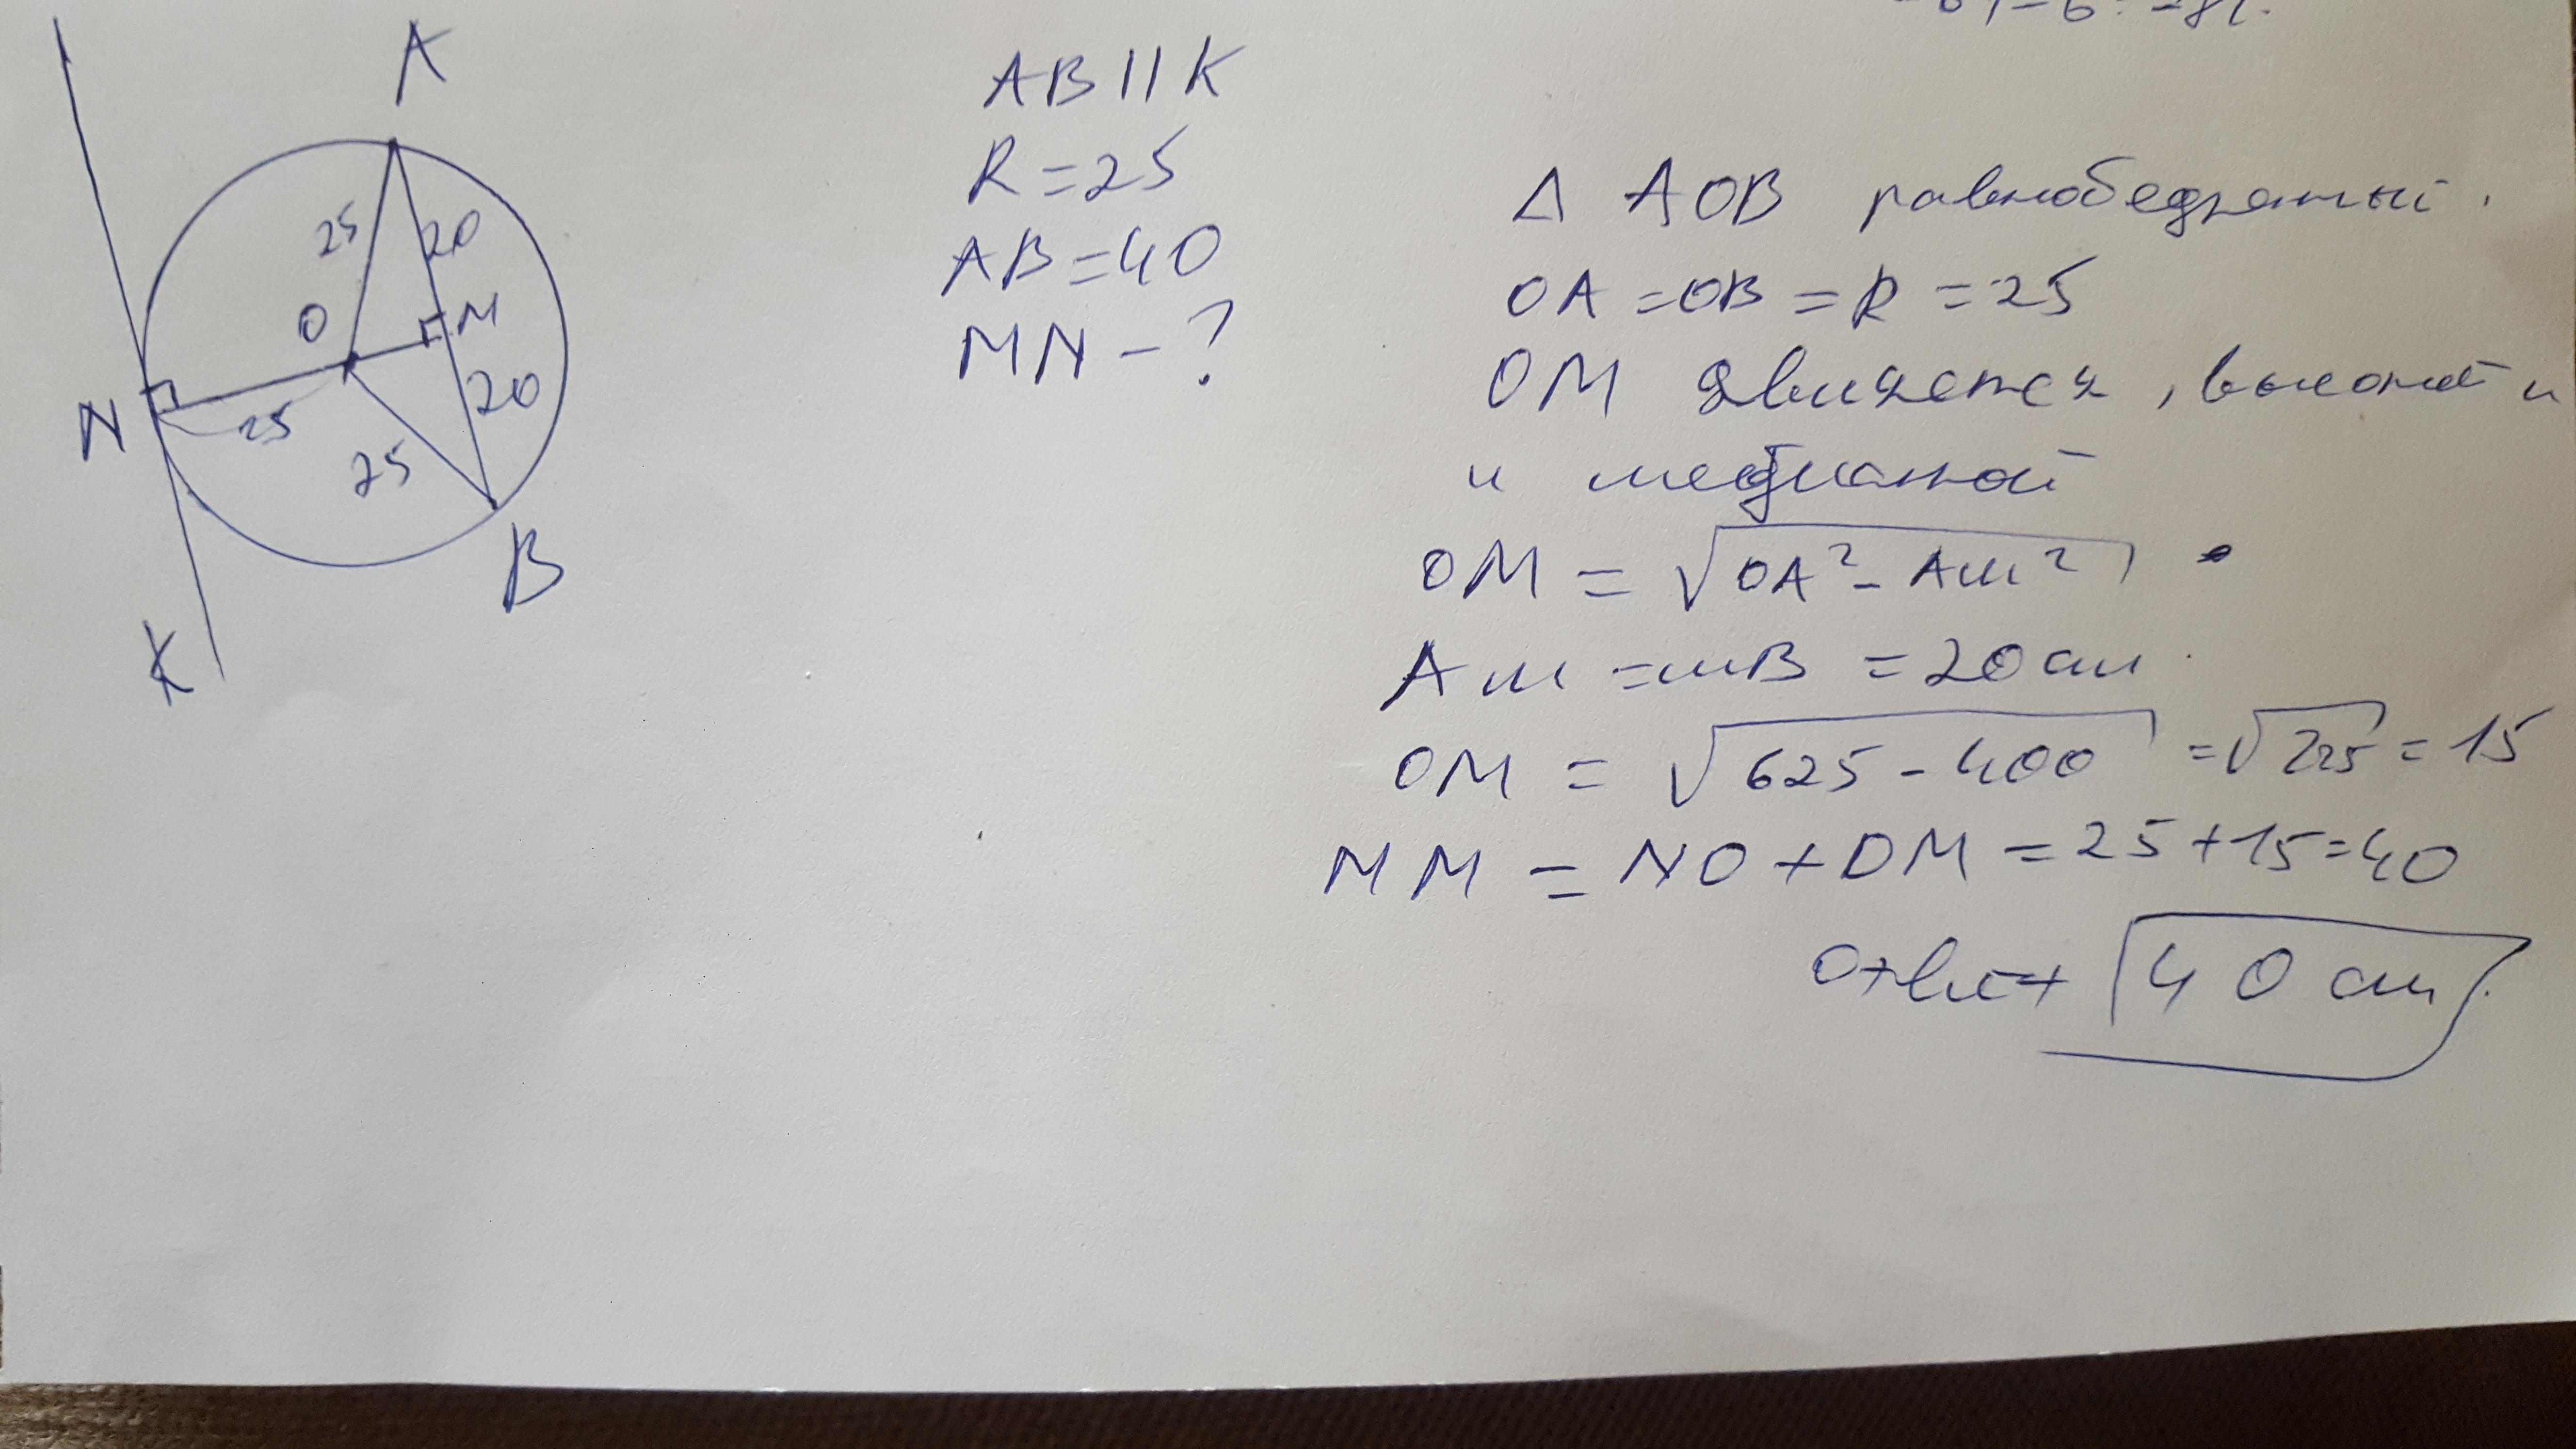 A
25
20
O
M
N
25
20
25
B
K
AB || K
R = 25
AB = 40
MN - ?
Δ AOB равнобедренный.
OA = OB = R = 25
OM является, высотой и
и медианой
OM = √OA² - Am²
Am = mB = 20 см.
OM = √625 - 400 = √225 = 15
MM = NO + OM = 25 + 15 = 40
Ответ 40 см.